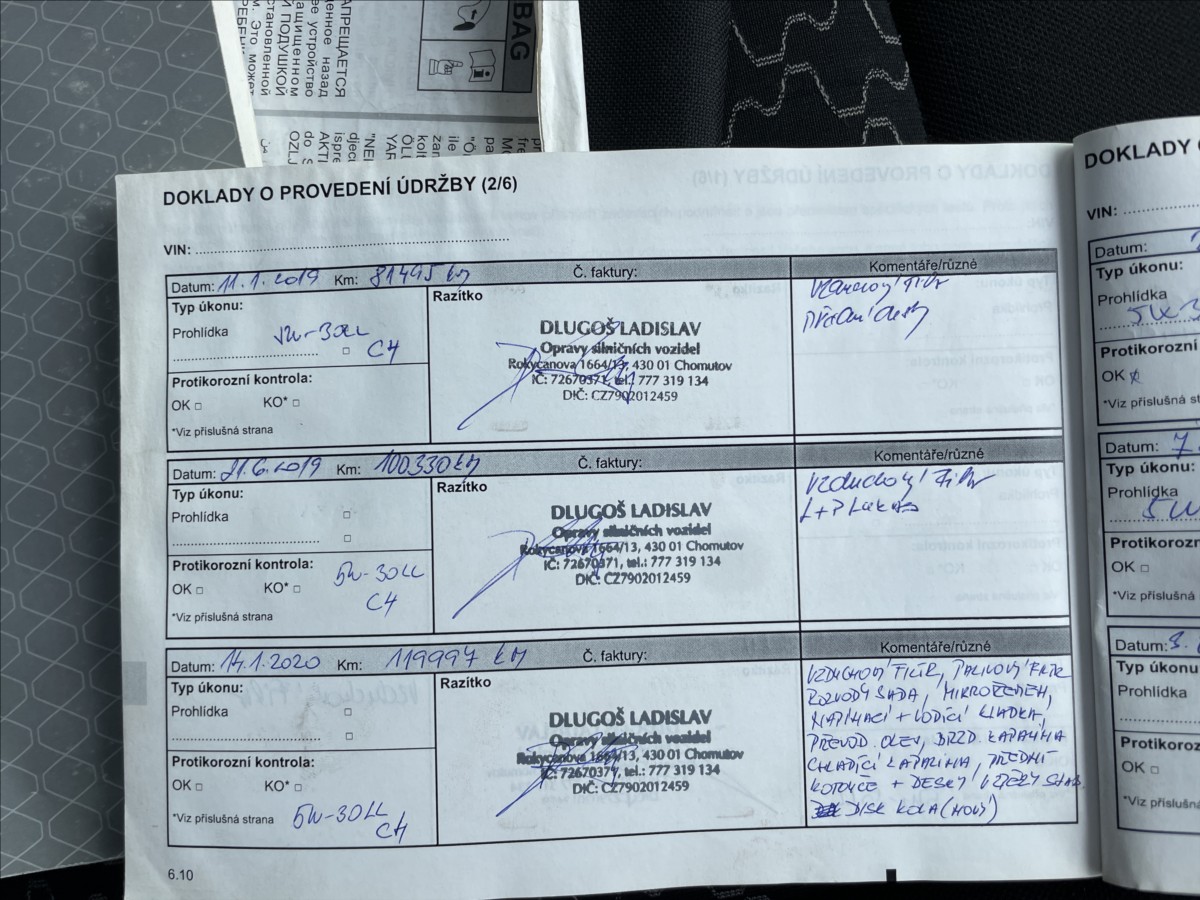 BAG
АПРЕЩАЕТСЯ
енное назад
ее устройство
ащищенном
Й ПОДУШКОЙ
становленной
м. Это может
DOKLADY O PROVEDENÍ ÚDRŽBY (2/6)
VIN:
Datum: 11.1.2019 Km: 81495 km Č. faktury: Komentáře/různé
Typ úkonu:
Razítko
Prohlídka
5W-30LL
□ C4
Protikorozní kontrola:
OK □ KO* □
*Viz příslušná strana
DLUGOŠ LADISLAV
Opravy silničních vozidel
Rokycanova 1664/13, 430 01 Chomutov
IČ: 72670371, tel.: 777 319 134
DIČ: CZ7902012459
Vzduchový filtr
přední desky
Datum: 21.6.2019 Km: 100330 km Č. faktury: Komentáře/různé
Typ úkonu:
Razítko
Prohlídka □
□
Protikorozní kontrola:
OK □ KO* □ 5W-30LL
C4
*Viz příslušná strana
DLUGOŠ LADISLAV
Opravy silničních vozidel
Rokycanova 1664/13, 430 01 Chomutov
IČ: 72670371, tel.: 777 319 134
DIČ: CZ7902012459
Vzduchový filtr
Datum: 14.1.2020 Km: 119997 KM Č. faktury: Komentáře/různé
Typ úkonu:
Razítko
Prohlídka □
□
Protikorozní kontrola:
OK □ KO* □
*Viz příslušná strana 5W-30LL
C4
DLUGOŠ LADISLAV
Opravy silničních vozidel
Rokycanova 1664/13, 430 01 Chomutov
IČ: 72670371, tel.: 777 319 134
DIČ: CZ7902012459
VZDUCHOVÝ FILTR, PALIVOVÝ FILTR
ROZVODY SADA, MIKROŘEMEN,
NAPÍNACÍ + VODÍCÍ KLADKA,
PŘEVOD. OLEJ, BRZD. KAPALINA
CHLADÍCÍ KAPALINA, PŘEDNÍ
KOTOUČE + DESKY, VZPĚRY STAB
DISK KOLA (NOVÝ)
6.10
DOKLADY
VIN:
Datum:
Typ úkonu:
Prohlídka
5W3
Protikorozní
OK
*Viz příslušná st
Datum: 7
Typ úkonu:
Prohlídka
5W
Protikorozn
OK □
*Viz příslušná
Datum:
Typ úkonu
Prohlídka
Protikoroz
OK □
*Viz příslušn